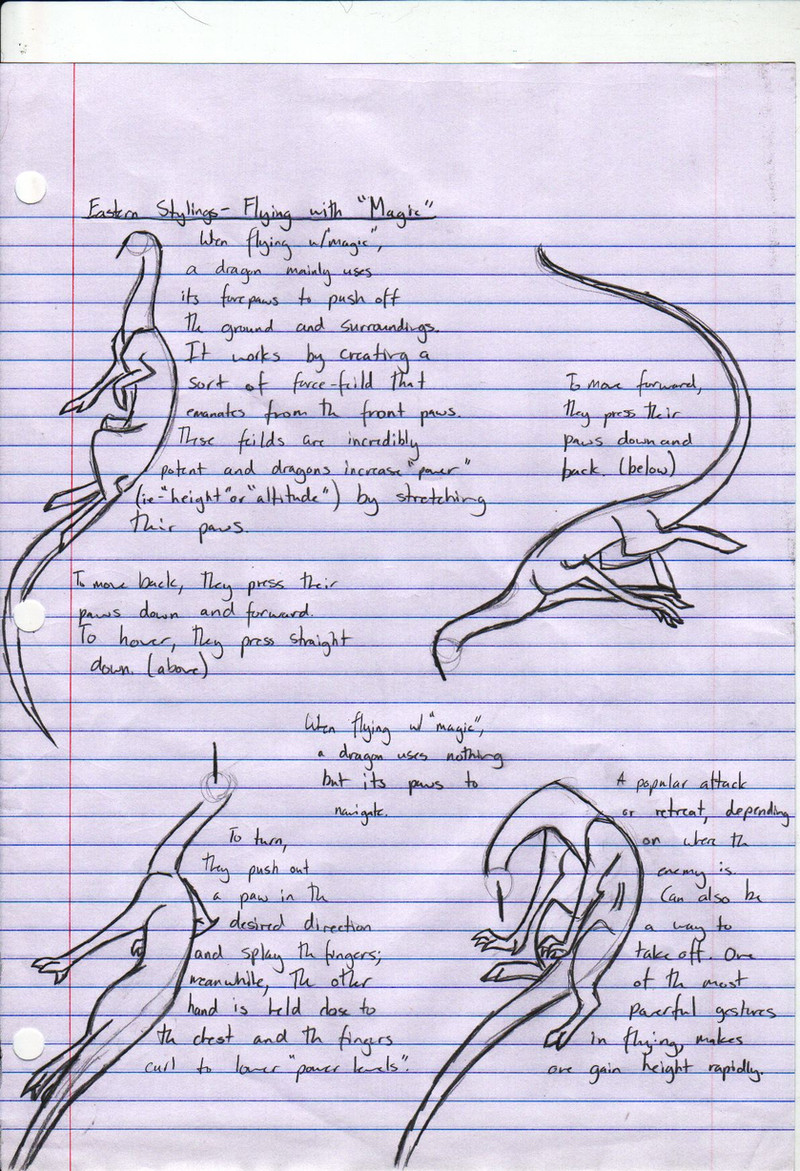 Eastern Stylings- Flying with "Magic"
When flying w/"magic",
a dragon mainly uses
its forepaws to push off
the ground and surroundings.
It works by creating a
sort of force-feild that
emanates from the front paws.
These feilds are incredibly
potent and dragons increase "power"
(ie-"height" or "altitude") by stretching
their paws.
To move back, they press their
paws down and forward.
To hover, they press straight
down. (above)
To move forward,
they press their
paws down and
back. (below)
When flying w/ "magic",
a dragon uses nothing
but its paws to
navigate.
To turn,
they push out
a paw in the
desired direction
and splay the fingers;
meanwhile, the other
hand is held close to
the chest and the fingers
curl to lower "power levels".
A popular attack
or retreat, depending
on where the
enemy is.
Can also be
a way to
take off. One
of the most
powerful gestures
in flying, makes
one gain height rapidly.